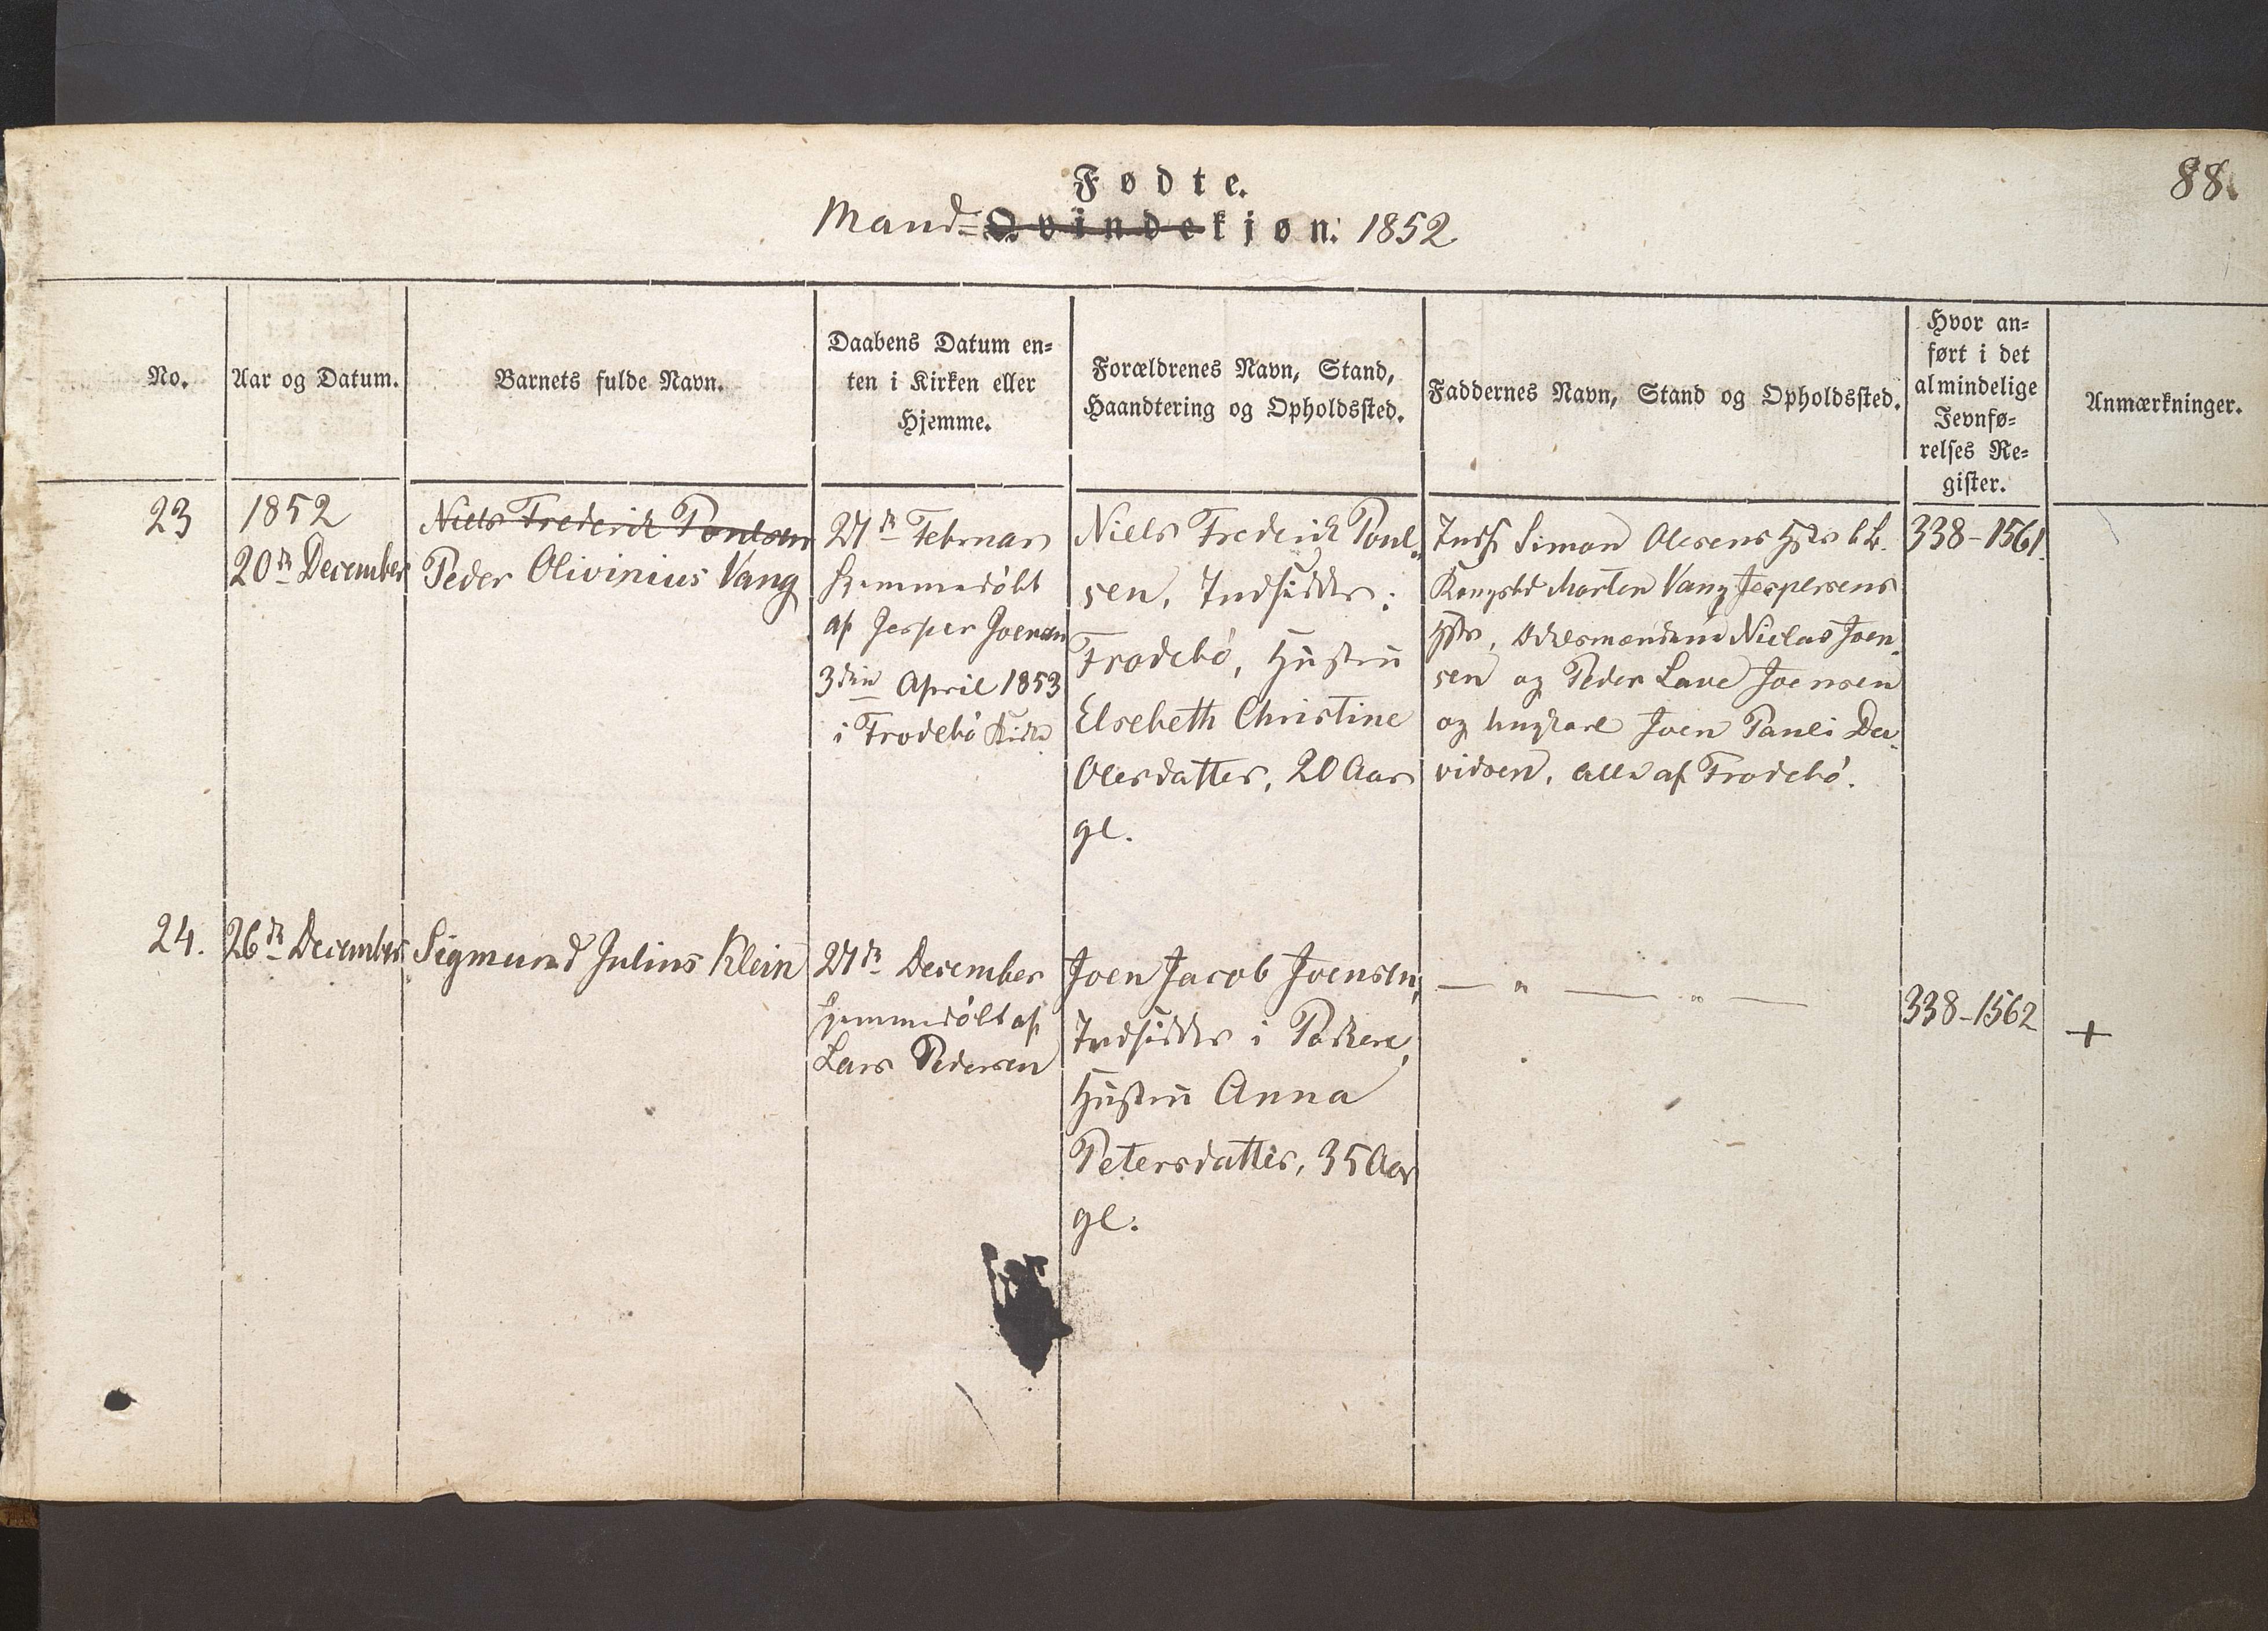 88.
Fødte.
Mand= Qvindekjøn. 1852
No.
Aar og Datum.
Barnets fulde Navn.
Daabens Datum en=
ten i Kirken eller
Hjemme.
Forældrenes Navn, Stand,
Haandtering og Opholdssted.
Faddernes Navn, Stand og Opholdssted.
Hvor an=
ført i det
almindelige
Jevnfø=
relses Re=
gister.
Anmærkninger.
23
1852
20de December
Niels Frederik Poulsen
Peder Olivinius Vang
27de Februar
hjemmedøbt
af Jesper Joensen
3die April 1853
i Frodebø Kirke
Niels Frederik Poul=
sen, Indsidder i
Frodebø, Hustru
Elsebeth Christine
Olesdatter, 20 Aar
gl.
Inds. Simon Olesens
Kongsbd Morten Vang Jespersens
Hstr, Odelsmændene Niclas Joen
sen og Peder Lave Joensen
og Ungkarl Joen Pauli Da
vidsen, alle af Frodebø.
338-1561.
24.
26de December
Sigmund Julius Klein
27de December
hjemmedøbt af
Lars Pedersen
Joen Jacob Joensen,
Indsidder i Porkere,
Hustru Anna
Petersdatter, 35 Aar
gl.
— " — " —
338-1562
+